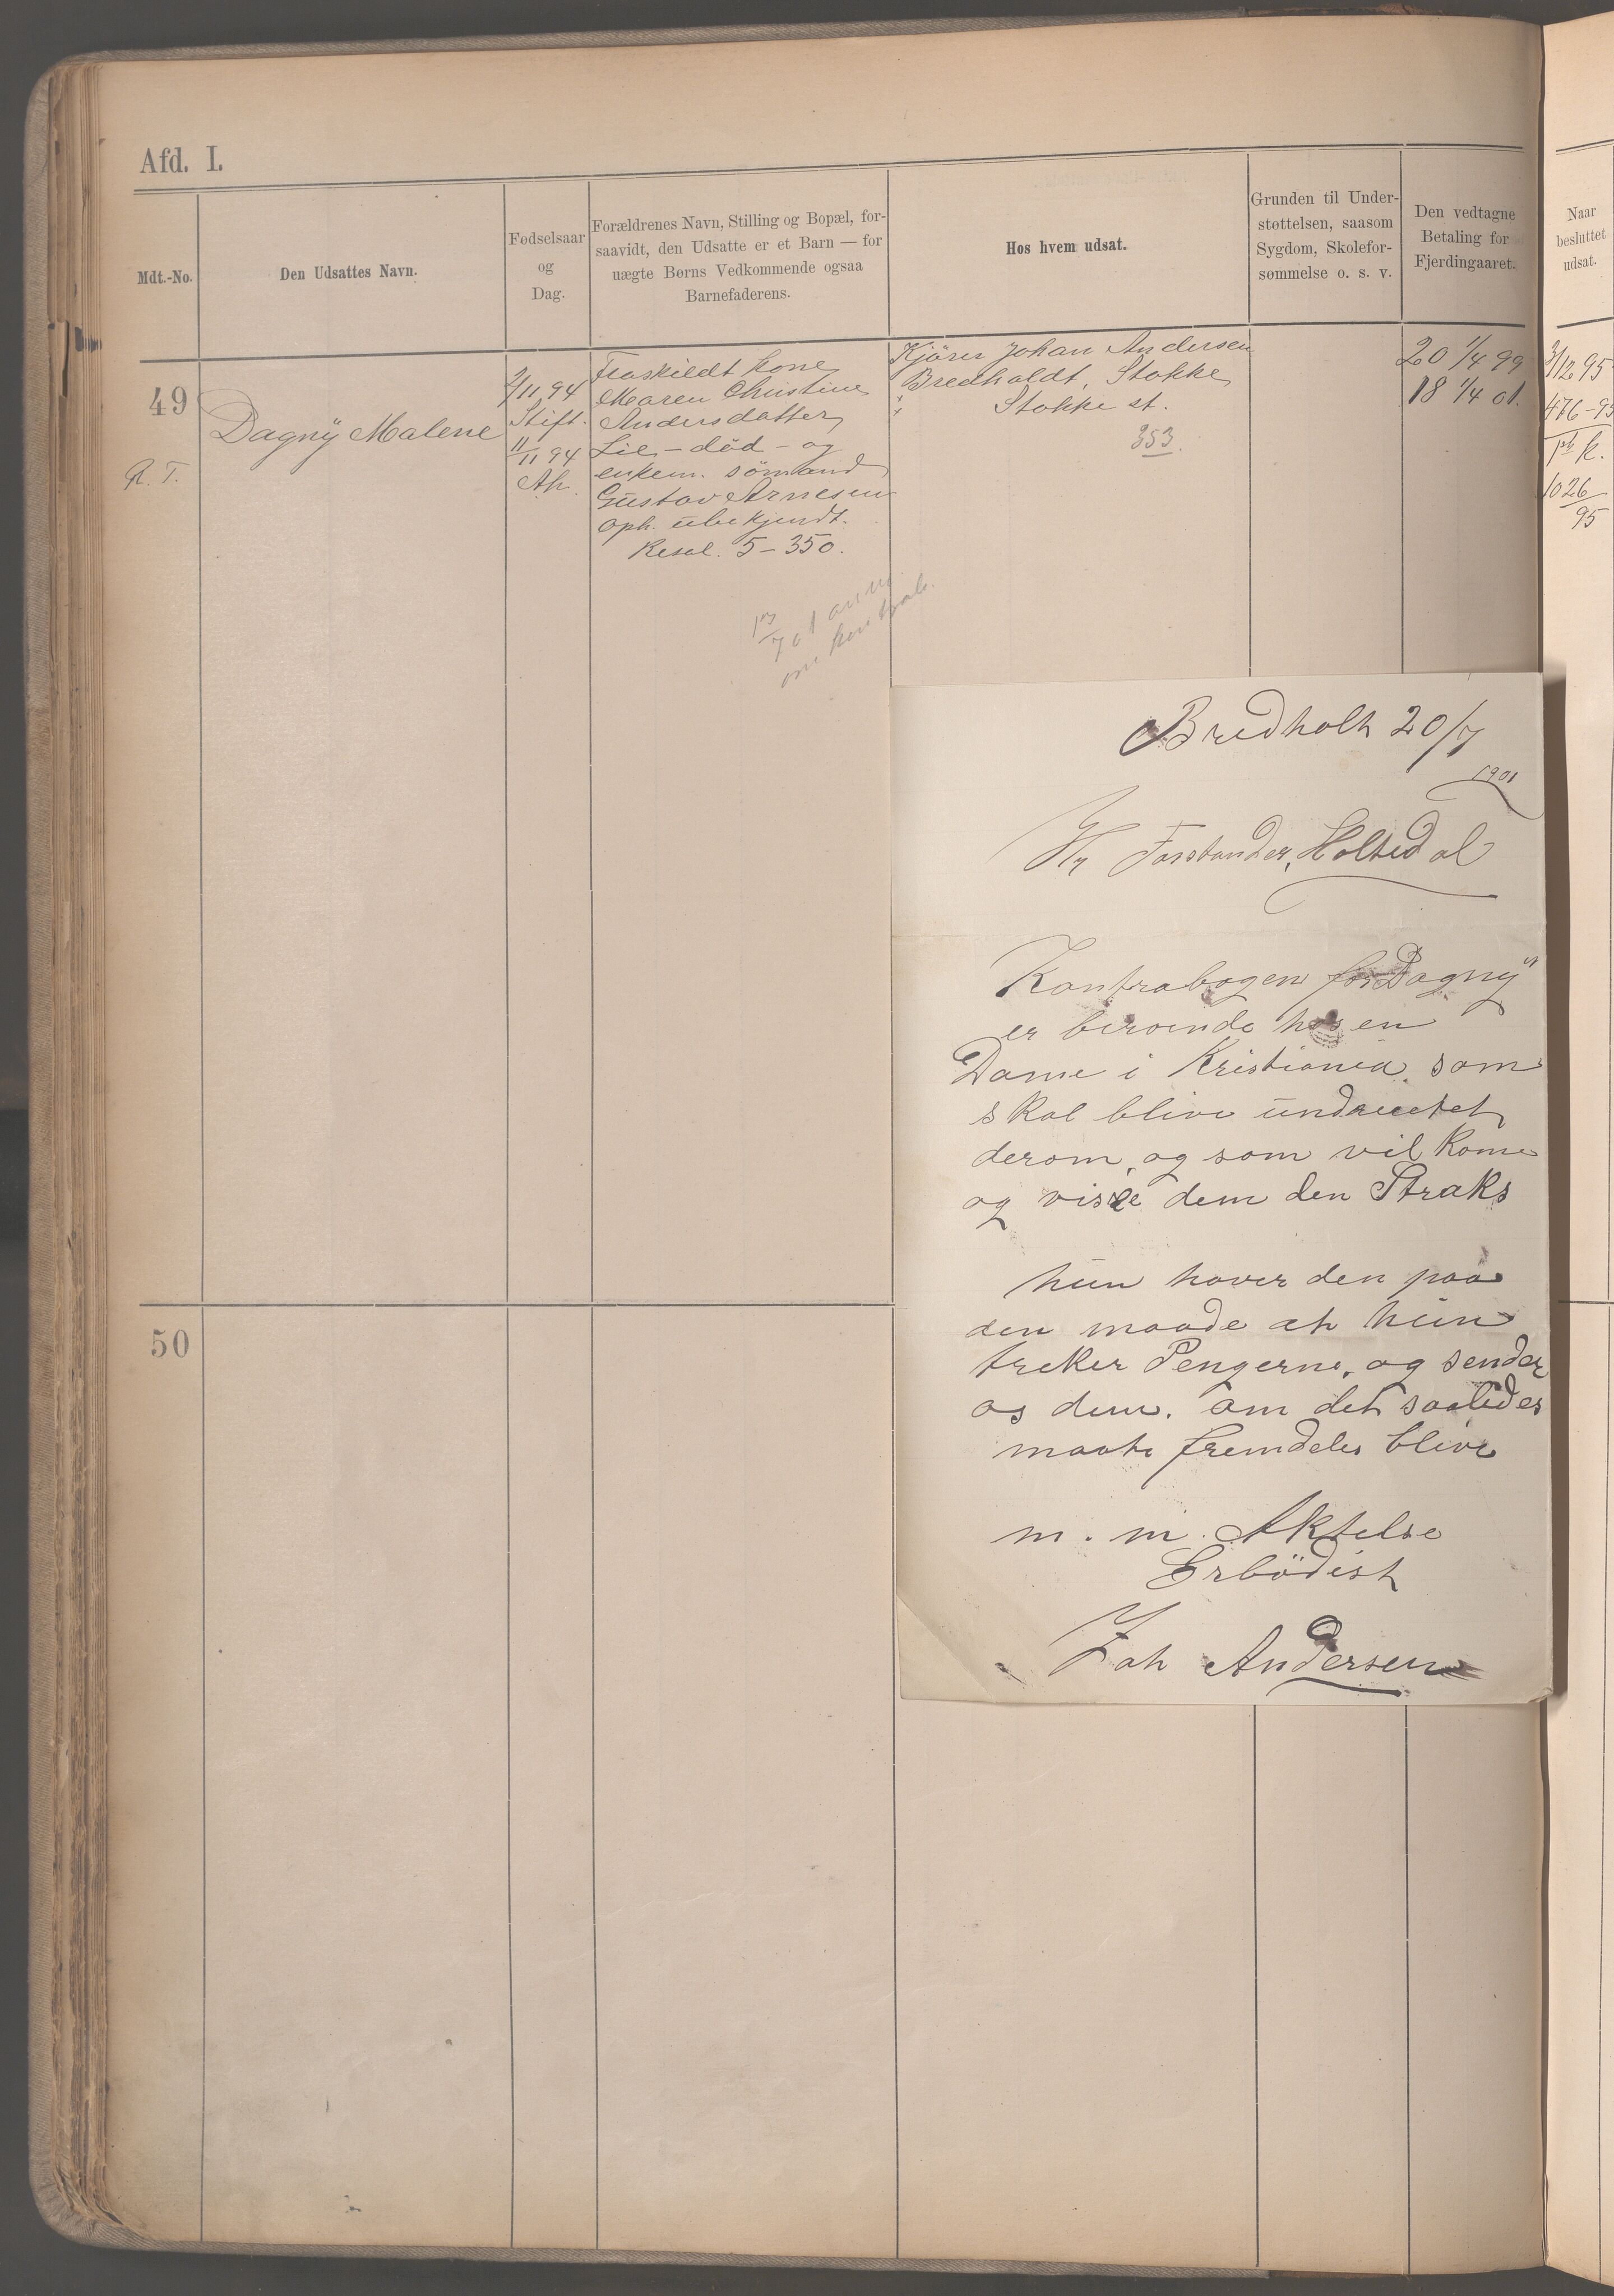 Afd. I.
Mdt.-No.
Den Udsattes Navn.
Fødselsaar
og
Dag.
Forældrenes Navn, Stilling og Bopæl, for-
saavidt, den Udsatte er et Barn — for
uægte Børns Vedkommende ogsaa
Barnefaderens.
Hos hvem udsat.
Grunden til Under-
støttelsen, saasom
Sygdom, Skolefor-
sømmelse o. s. v.
Den vedtagne
Betaling for
Fjerdingaaret.
Naar
besluttet
udsat.
49
R. T.
Dagny Malene
2/11 94
Stift.
11/11 94
Ap.
Fraskildt kone
Maren Christine
Andersdatter
Lie - död - og
enkem. sömand
Gustav Arnesen
oph. ubekjendt.
Resol. 5-350.
Kjörer Johan Andersen
Bredholdt, Stokke
Stokke st.
353.
20 1/4 99
18 1/4 01.
3/12 95
476-95
1026
95
om kontrab.
Bredholt 20/7
1901
Hr Forstander, Holtedal
Kontrabogen for Dagny
er beroende hos en
Dame i Kristiania. som
skal blive undrettet
derom, og som vil Kome
og visse dem den Straks
hun haver den paa
den maade at hun
treker Pengerne, og sender
os dem. om det saaledes
maate fremdeles blive
m. m. Aktelse
Erbödist
Joh Andersen
50